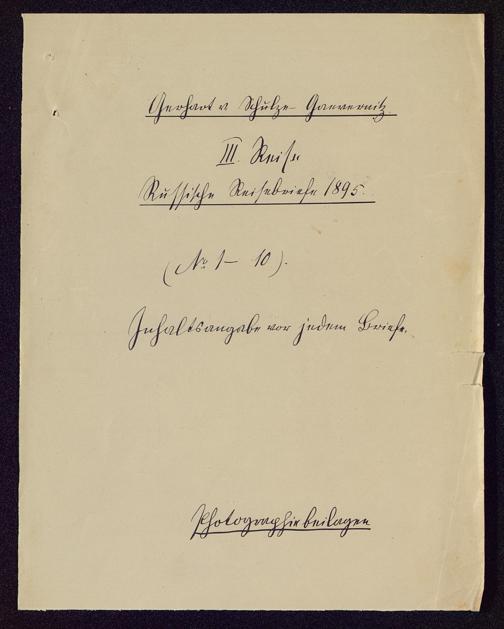 Gerhart v Schulze-Gaevernitz.
III. Reise
Russische Reisebriefe 1895.
(No 1 – 10).
Inhaltsangabe vor jedem Briefe.
Photographiebeilagen